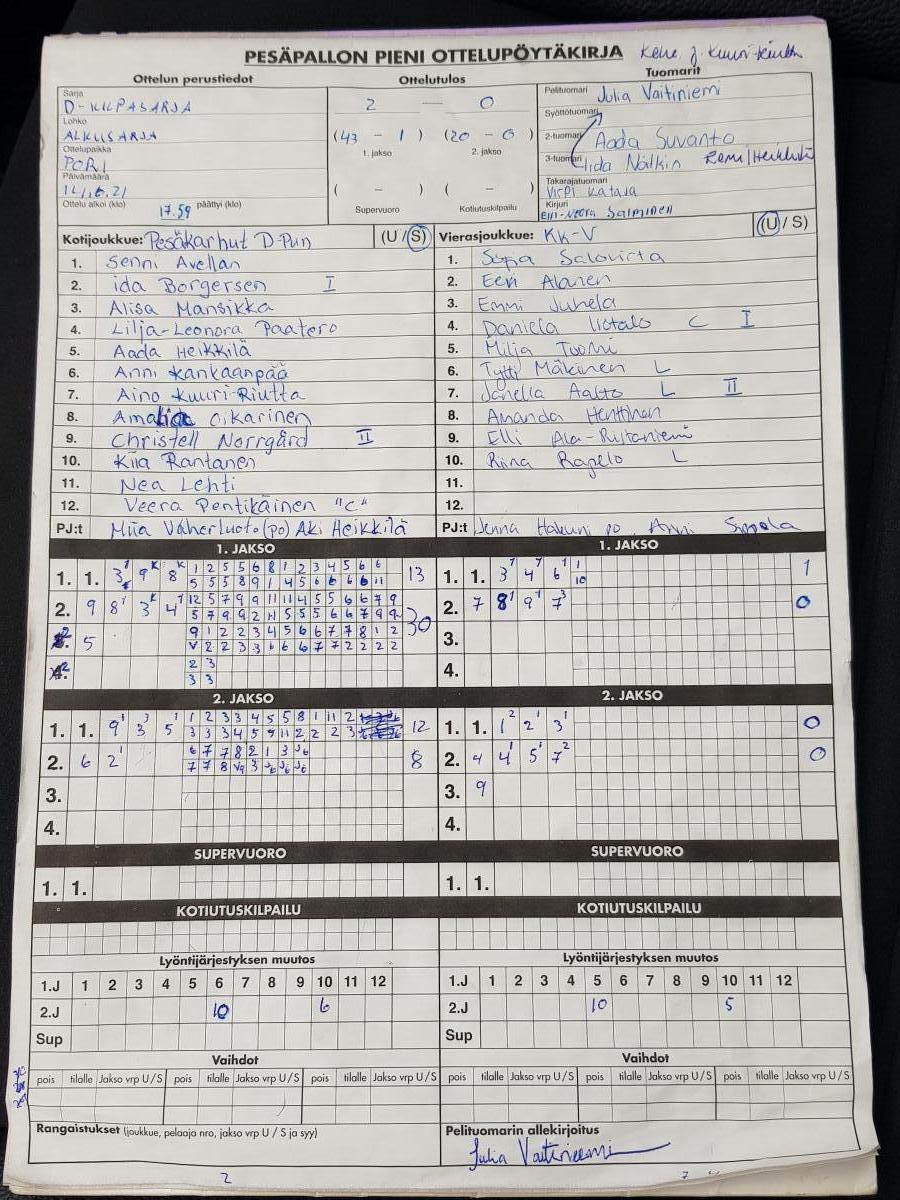 PESÄPALLON PIENI OTTELUPÖYTÄKIRJA
Ottelun perustiedot
Ottelutulos
Tuomarit
Sarja
D-KILPASARJA
Lohko
ALKUSARJA
Ottelupaikka
PORI
Päivämäärä
Ottelu alkoi (klo) 17.59 päättyi (klo)
2 — 0
(43 - 1) (20 - 0)
1. jakso 2. jakso
( - ) ( - )
Supervuoro Kotiutuskilpailu
Pelituomari Julia Vaitiniemi
Syöttötuomari
2-tuomari Aada Suvanto
3-tuomari Iida Nälkin
Takarajatuomari
Virpi Katava
Kirjuri
Salminen
Kotijoukkue: Pesäkarhut D-Pun (U/S)
1. Senni Avellan
2. Ida Borgersen I
3. Alisa Mansikka
4. Lilja-Leonora Paatero
5. Aada Heikkilä
6. Anni Kankaanpää
7. Aino Kuuri-Riutta
8. Amalia Oikarinen
9. Christell Norrgård II
10. Kiia Rantanen
11. Nea Lehti
12. Veera Pentikäinen "C"
PJ:t Miia Vaherluoto (po) Aki Heikkilä
Vierasjoukkue: KK-V (U/S)
1. Sopa Salovirta
2. Eevi Alanen
3. Emmi Juhela
4. Daniela Iistalo C I
5. Milja Tuomi
6. Tytti Mäkinen L
7. Janella Aalto L II
8. Amanda Henttinen
9. Elli Ala-Ristaniemi
10. Riina Rapelo L
11.
12.
PJ:t Jenna Hakuni po, Anni Sippola
1. JAKSO
1. 1. 3 9 8 13
1 2 5 5 6 8 1 2 3 4 5 6 6
5 5 5 8 9 1 4 5 6 6 6 6 11
2. 9 8 3 4 30
12 5 7 9 9 11 11 4 5 5 6 6 7 9
9 1 2 2 3 4 5 6 6 7 7 8 1 2
5
V 2 2 3 3 6 6 6 7 7 2 2 2 2
2 3
3 3
1. JAKSO
1. 1. 3 4 6 1
1
10
2. 7 8 9 7 0
3.
4.
2. JAKSO
1. 1. 9 3 5 12
1 2 3 3 4 5 5 8 1 11 2
2. 6 2 8
3.
4.
2. JAKSO
1. 1. 1 2 3 0
2. 4 4 5 7 0
3. 9
4.
SUPERVUORO
1. 1.
SUPERVUORO
1. 1.
KOTIUTUSKILPAILU
KOTIUTUSKILPAILU
Lyöntijärjestyksen muutos
1.J 1 2 3 4 5 6 7 8 9 10 11 12
2.J 10 6
Sup
Lyöntijärjestyksen muutos
1.J 1 2 3 4 5 6 7 8 9 10 11 12
2.J 10 5
Sup
Vaihdot
pois tilalle Jakso vrp U/S pois tilalle Jakso vrp U/S pois tilalle Jakso vrp U/S
Vaihdot
pois tilalle Jakso vrp U/S pois tilalle Jakso vrp U/S pois tilalle Jakso vrp U/S
Rangaistukset (joukkue, pelaaja nro, jakso vrp U/S ja syy)
Pelituomarin allekirjoitus
Julia Vaitiniemi